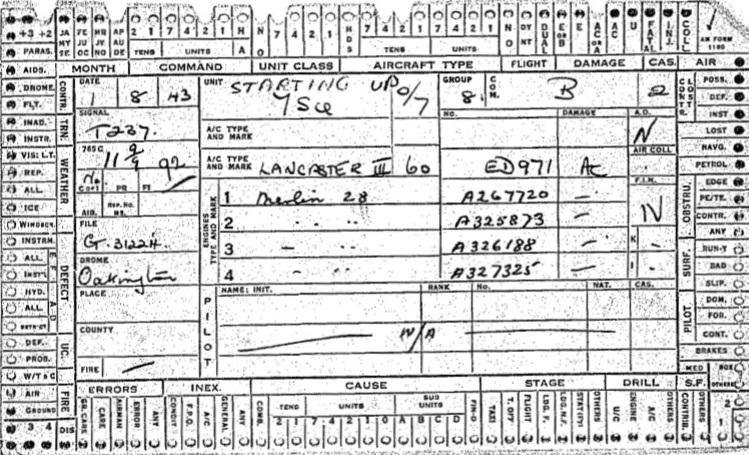 +3 +2 JA FE MR AP 7 4 2 1 7 4 2 1 H N 7 4 2 1 7 4 2 1 H 7 4 2 1 7 4 2 1 N DY DUAL C E AC AC U FATAL INJ. COLL
MY JU JY AU TENS UNITS O TENS UNITS O NT OR B OR A AM FORM 1180
SE OC NO DE
PARAS. MONTH COMMAND UNIT CLASS AIRCRAFT TYPE FLIGHT DAMAGE CAS. AIR
AIDS. DATE UNIT STARTING UP 0/7 GROUP COM. POSS.
DROME. CONTR. 1 8 43 7 SQ 8 B 2 CONTR. DEF.
FLT. SIGNAL No. DAMAGE A.O. INST
INAD. TRN. T237. A/C TYPE AND MARK N LOST
INSTR. 765C AIR COLL NAVG.
VIS: LT. WEATHER 11 9/9 92 A/C TYPE AND MARK LANCASTER III 60 ED971 AC PETROL
REP. No. COPY PR FI F.I.R. EDGE
ALL REP. No. 1 Merlin 28 A267720 — N OBSTRU. PE/TE.
ICE AID. ENGINES TYPE AND MARK 2 " " A325873 — CONTR.
WINDSCN. FILE ANY
INSTRN. G. 31224. 3 — " A326188 — K SURF. RUN-Y
ALL DEFECT DROME BAD
INST'L Oakington 4 " " A327325 — I SLIP.
HYD. PLACE PILOT NAME: INIT. RANK No. NAT. CAS. PILOT DOM.
ALL FOR.
COUNTY N/A CONT.
DEF. UC. BRAKES
PROB. FIRE — MED
W/T & C ERRORS INEX. CAUSE STAGE DRILL S.F. OTHERS
AIR FIRE GR. CARE CARE AIRMAN ERROR ANY CONDIT F.P.O. A/C GENERAL ANY COMB. TENS UNITS SUB UNITS FIN-O TAXI T. OFF FLIGHT LDG. F. LDG. N.F. STAT(Y) OTHERS U/C ENGINE A/C OTHERS CONTRIB. OTHERS 2
GROUND 2 1 7 4 2 1 0 A B C D 1
3 4 DIS